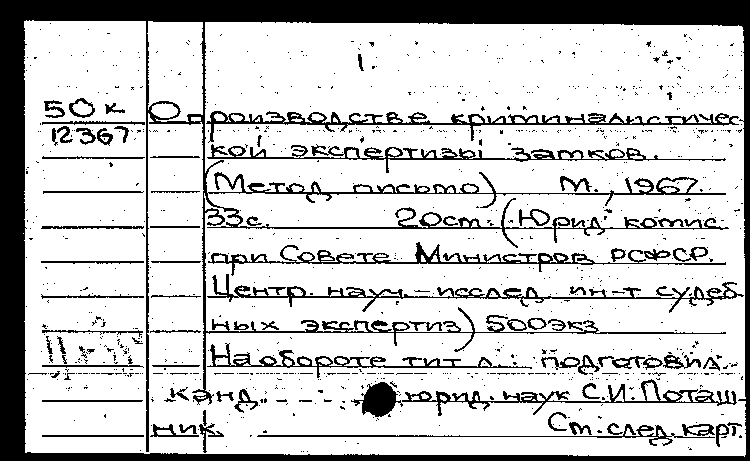 1.
50к О производстве криминалистичес
12367
кой экспертизы замков.
(Метод. письмо). М., 1967.
33с. 20см. (Юрид. комис.
при Совете Министров РСФСР.
Центр. науч.-исслед. ин-т судеб
ных экспертиз) 500экз
На обороте тит. л.: подготовил
канд. юрид. наук С.И. Поташ-
ник. См. след. карт.